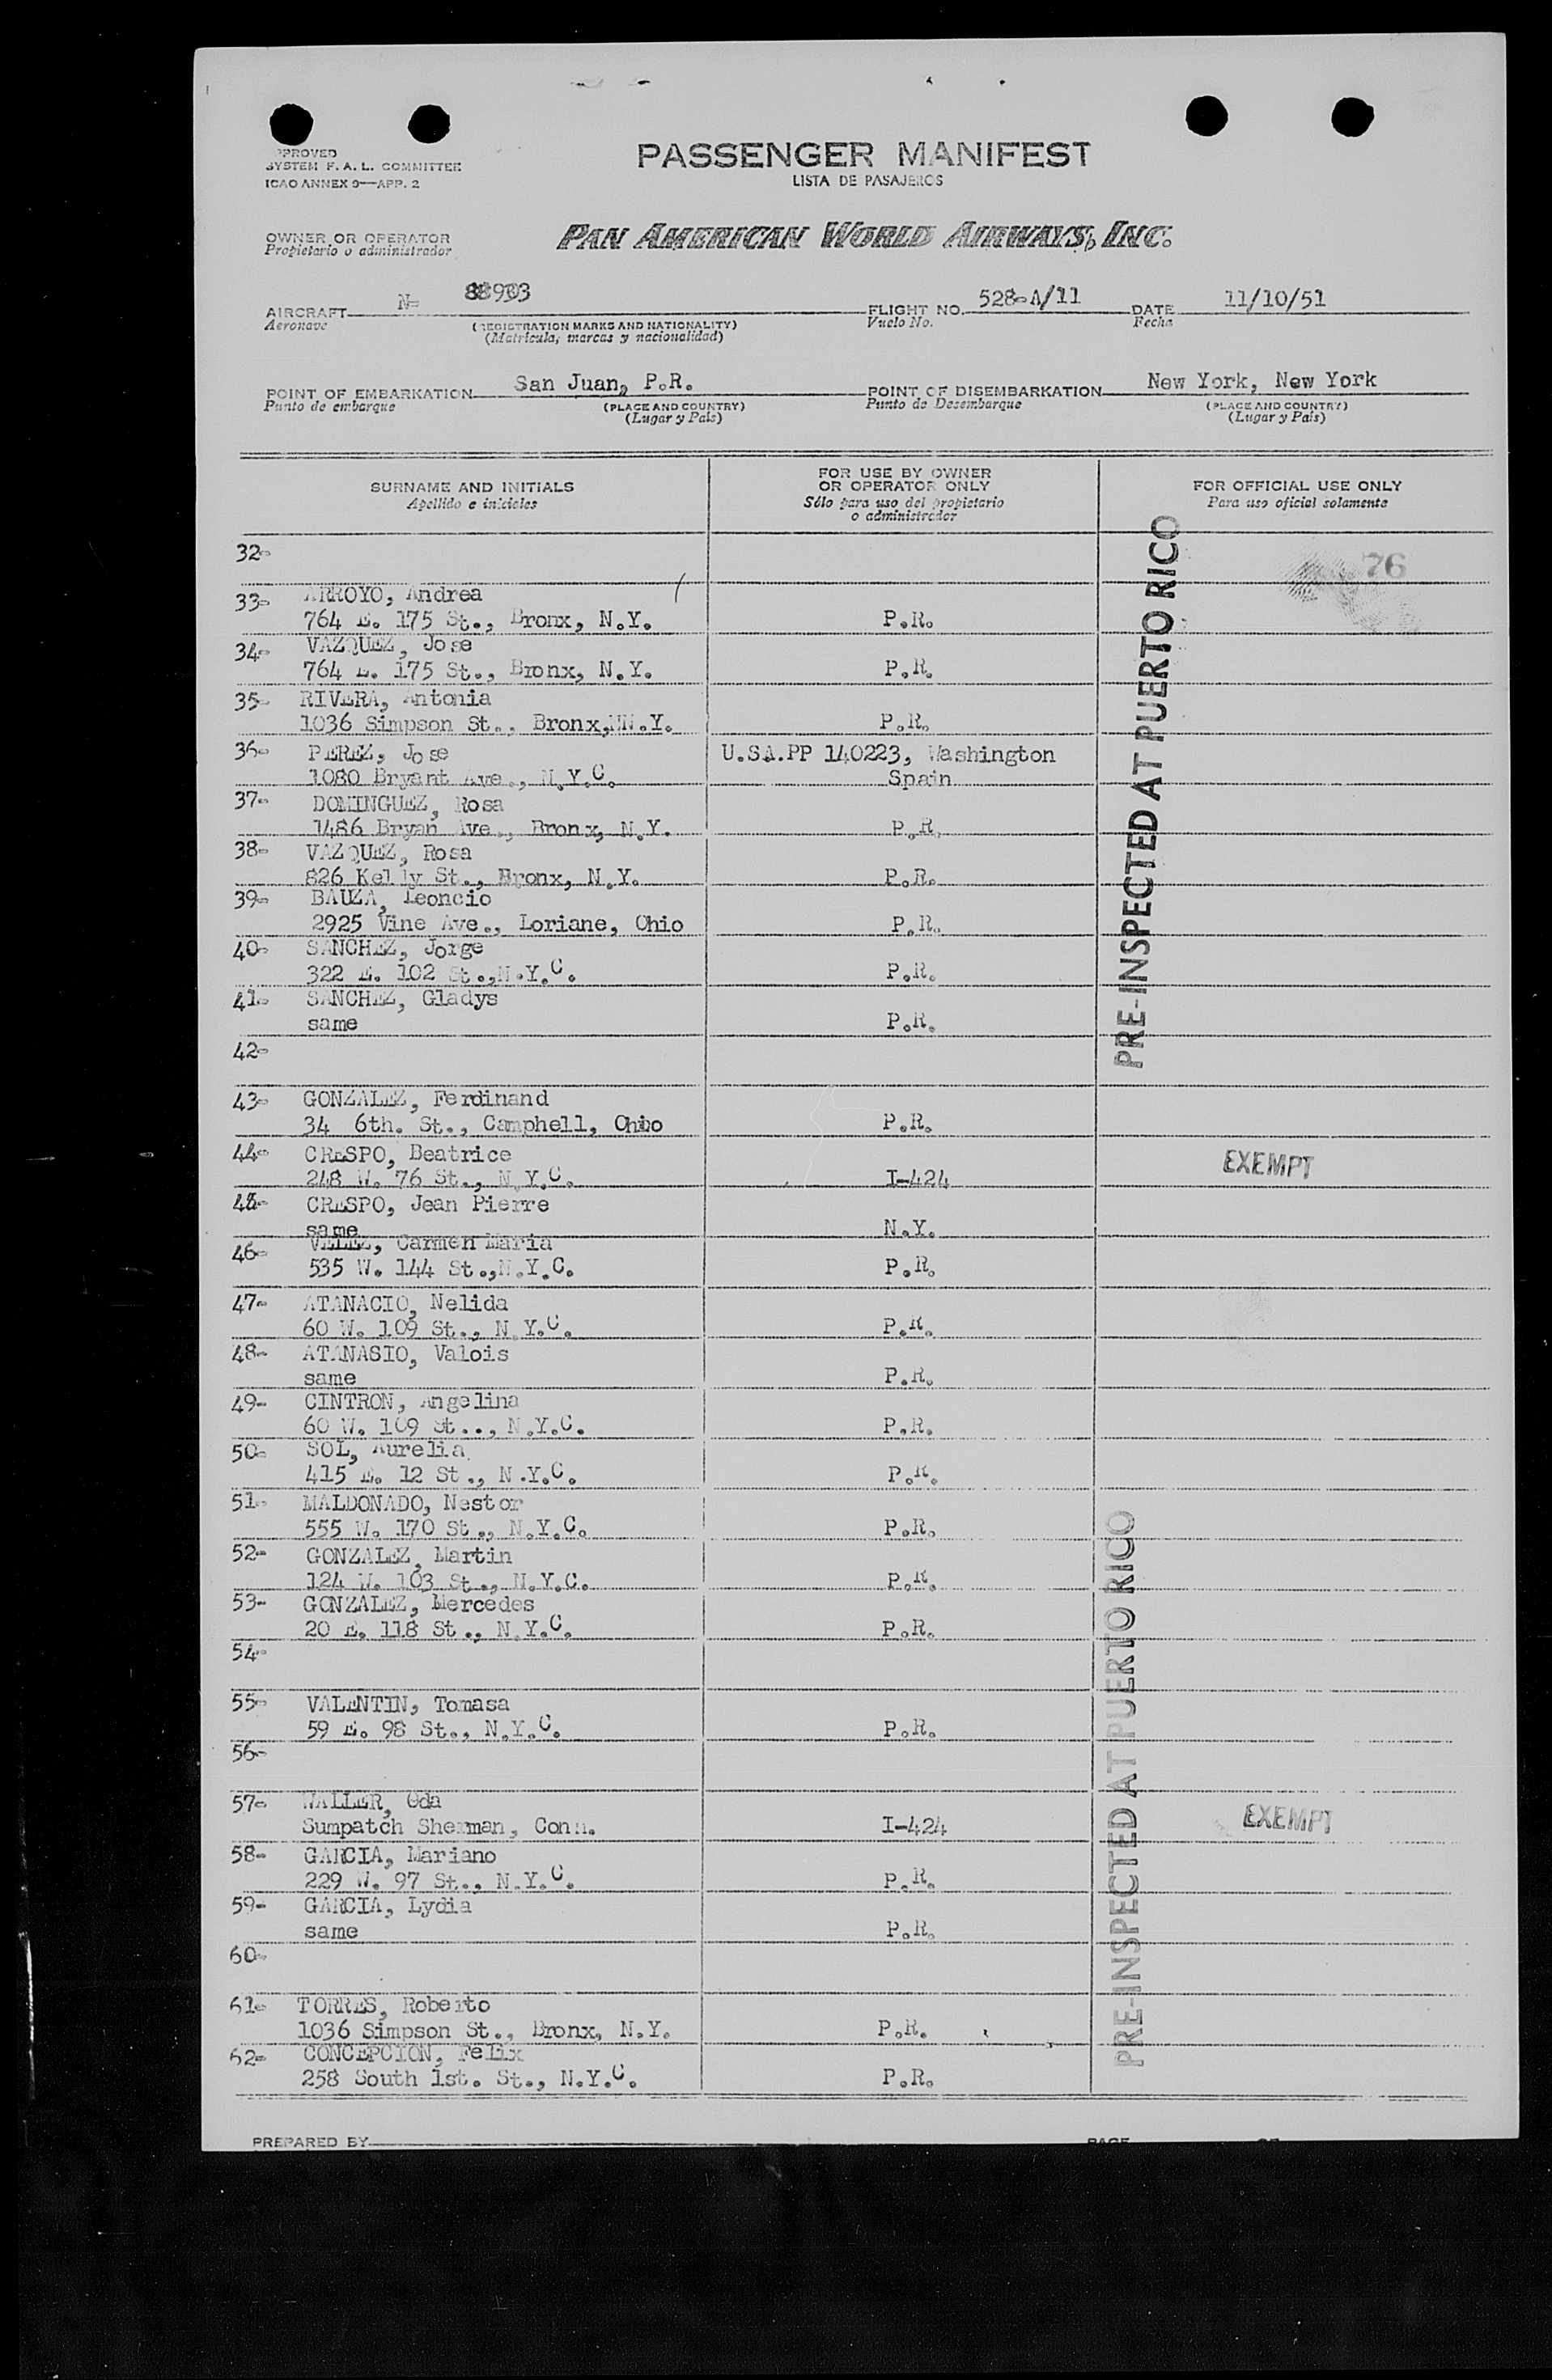 PPROVED
SYSTEM F. A. L. COMMITTEE
ICAO ANNEX 9—APP. 2
PASSENGER MANIFEST
LISTA DE PASAJEROS
OWNER OR OPERATOR
Propietario o administrador
PAN AMERICAN WORLD AIRWAYS, INC.
AIRCRAFT N- 903 FLIGHT NO. 528-A/11 DATE 11/10/51
Aeronave (REGISTRATION MARKS AND NATIONALITY) Vuelo No. Fecha
(Matricula, marcas y nacionalidad)
POINT OF EMBARKATION San Juan, P.R. POINT OF DISEMBARKATION New York, New York
Punto de embarque (PLACE AND COUNTRY) Punto de Desembarque (PLACE AND COUNTRY)
(Lugar y País) (Lugar y País)
SURNAME AND INITIALS
Apellido e iniciales
FOR USE BY OWNER
OR OPERATOR ONLY
Sólo para uso del propietario
o administrador
FOR OFFICIAL USE ONLY
Para uso oficial solamente
PRE-INSPECTED AT PUERTO RICO
76
32-
33- ARROYO, Andrea
764 E. 175 St., Bronx, N.Y. P.R.
34- VAZQUEZ, Jose
764 E. 175 St., Bronx, N.Y. P.R.
35- RIVERA, Antonia
1036 Simpson St., Bronx,NN.Y. P.R.
36- PEREZ, Jose U.S.A.PP 140223, Washington
1080 Bryant Ave., N.Y.C. Spain
37- DOMINGUEZ, Rosa
1486 Bryan Ave., Bronx, N.Y. P.R.
38- VAZQUEZ, Rosa
826 Kelly St., Bronx, N.Y. P.R.
39- BAUZA, Leoncio
2925 Vine Ave., Loriane, Ohio P.R.
40- SANCHEZ, Jorge
322 E. 102 St.,N.Y.C. P.R.
41- SANCHEZ, Gladys
same P.R.
42-
43- GONZALEZ, Ferdinand
34 6th. St., Camphell, Ohio P.R.
44- CRESPO, Beatrice EXEMPT
248 W. 76 St., N.Y.C. I-424
45- CRESPO, Jean Pierre
same N.Y.
46- VELEZ, Carmen Maria
535 W. 144 St.,N.Y.C. P.R.
47- ATANACIO, Nelida
60 W. 109 St., N.Y.C. P.R.
48- ATANASIO, Valois
same P.R.
49- CINTRON, Angelina
60 W. 109 St.., N.Y.C. P.R.
50- SOL, Aurelia
415 E. 12 St., N.Y.C. P.R.
51- MALDONADO, Nestor
555 W. 170 St., N.Y.C. P.R.
52- GONZALEZ, Martin
124 W. 103 St., N.Y.C. P.R.
53- GONZALEZ, Mercedes
20 E. 118 St., N.Y.C. P.R.
54-
PRE-INSPECTED AT PUERTO RICO
55- VALENTIN, Tomasa
59 E. 98 St., N.Y.C. P.R.
56-
57- WALLER, Oda EXEMPT
Sumpatch Sherman, Conn. I-424
58- GARCIA, Mariano
229 W. 97 St., N.Y.C. P.R.
59- GARCIA, Lydia
same P.R.
60-
61- TORRES, Roberto
1036 Simpson St., Bronx, N.Y. P.R.
62- CONCEPCION, Felix
258 South 1st. St., N.Y.C. P.R.
PREPARED BY PAGE